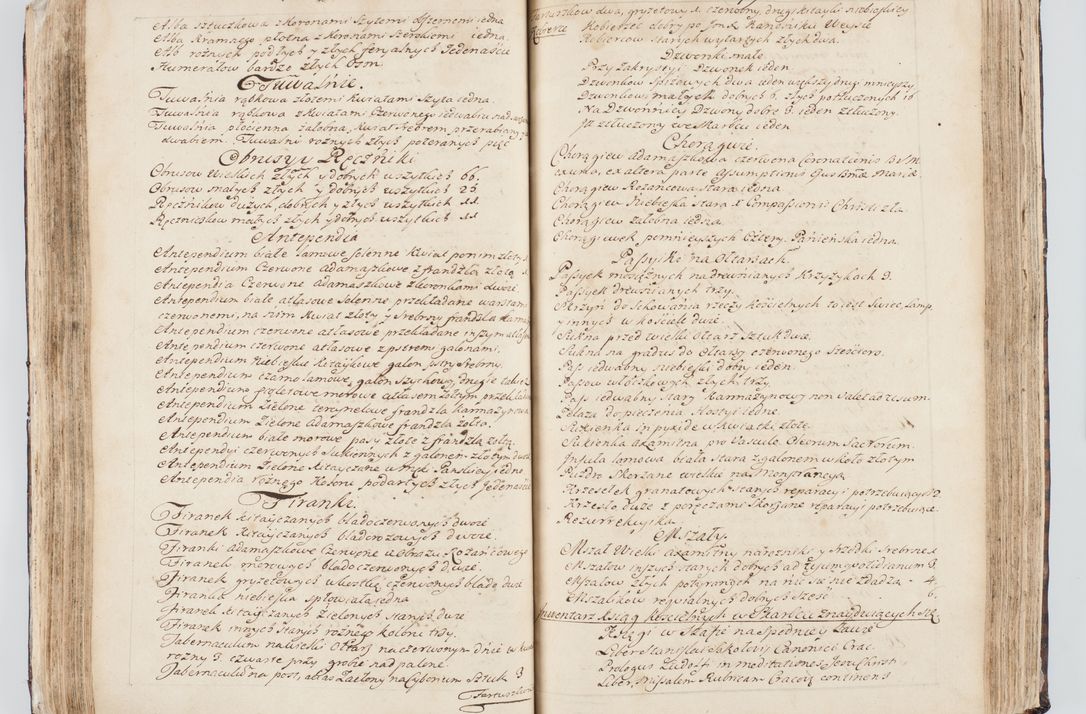 Alba sztuczkowa z Koronami Szytemi iedna
Alba Kramnego płotna z Koronami Szerokiemi iedna.
Alb rożnych podłych y złych feryalnych Jedenascie
Humerałow bardzo złych Osm.
Tuwalnie.
Tuwalnia rąbkowa złotemi Kwiatami Szyta iedna.
Tuwalnia rąbkowa z Kwiatami Czerwonego iedwabiu
Tuwalnia płocienna żałobna, Kwiat Srebrem przerabiany
dwabiem. Tuwalni rożnych złych poteranych pięć
Obrusy y Ręczniki
Obrusow Wielkich złych y dobrych wszytkich 66.
Obrusow małych złych y dobrych wszytkich 26
Ręcznikow dużych, dobrych y złych wszytkich 11.
Ręcznikow małych złych y dobrych wszytkich 11
Antependia
Antependium białe lamowe ponim złoty
Antependium Czerwone adamaszkowe z frandzlą złotą
Antependia Czerwone adamaszkowe z koronkami dwoie
Antependium białe atłasowe Selerine przekładane
czerwonemi, na nim Kwiat złoty y Srebrny frandzla
Antependium czerwone atłasowe przekładane inszym
Antependium czerwone atłasowe z pstremi galonami.
Antependium Niebieskie Kitaykowe galon Srebrny.
Antependium czarno lamowe, galon Szychowy, drugie takież
Antependium fioletowe morowe atłasem żołtym
Antependium Zielone tercynelowe frandzla Karmazynowa
Antependium Zielone adamaszkowe frandzla żołta.
Antependium białe morowe pasy złote z frandzlą żołtą
Antependyi czerwonych Sukiennych z galonem złotym
Antependium Zielone Kitayczane iedne
Antependia rożnego Koloru podartych złych Jedenascie
Firanki.
Firanek Kitayczanych bladoczerwonych dwoie
Firanek Kitayczanych bladorożowych dwoie.
Firanki adamaszkowe Czerwone u Obrazu Rożańcowego
Firanek morowych bladoczerwonych dwoie.
Firanek gryzetowych w kostkę czerwonych blado dwa
Firanka niebieska Spłowiała iedna
Firanek Kitayczanych Zielonych starych dwoie
Firanek innych starych rożnego koloru trzy.
Tabernaculum na wielki Ołtarz na czerwonym dnie
rożny 3. czwarte przy grobie nad palme
Tabernaculum na post, atłas Zielony na Cyborium Sztuk 3
Fartuszkow
Fartuszkow dwa, gryzetowy 1. czerwony, drugi Kitayki niebieskiey
Kobierce Kobierzec dobry po Kamińskim
Kobiercow starych wytartych złych dwa.
Dzwonki małe
Przy Zakrystyi Dzwonek ieden.
Dzwonkow Spiżowych dwa ieden większy drugi mnieyszy
Dzwonkow małych dobrych 6. złych potłuczonych 16
Na Dzwonnicy Dzwony dobre 3. ieden ztłuczony.
It ztłuczony w Skarbcu ieden
Chorągwie.
Chorągiew adamaszkowa czerwona Coronationis
ex altera parte Assumptionis Mariae
Chorągiew Rożancowa stara iedna
Chorągiew Niebieska stara Compassionis Christi zła.
Chorągiew żałobna iedna
Chorągiewek pomnieyszych Cztery. Panieńska iedna.
Passyike na Ołtarzach.
Passyek mosiężnych na drewnianych Krzyżykach 9.
Passyek drewnianych trzy.
Skrzyń do Schowania rzeczy kościelnych to iest Swiec Lamp
y innych w Kościele dwie.
Sukna przed wielki ołtarz Sztuk dwie.
Sukna na gradus do Ołtarzy czerwonego Szescioro.
Pas iedwabny niebieski dobry ieden.
Pasow włoczkowych złych trzy
Pas iedwabny stary Karmazynowy non valet ad usum.
Zelaza do pieczenia Hostyi iedne
Sukienka in pyxide w Kwiatki złote
Sukienka axamitna pro Vasculo Oleorum Sacrorum.
Infuła lamowa biała stara z galonem wkoło złotym
Puzdro Skorzane wielkie na Monstrancyą
Krzesełek granatowych starych reparacyi potrzebuiących 2.
Krzesło duże z poręczami Skorzane reparacyi potrzebuiące.
Rezurrekcyika
Mszały.
Mszał Wielki axamitny narożniki y Srzodki Srebrne 1
Mszałow inszych starych dobrych ad usum quotidianum 3.
Mszałow złych potarganych na nic się nie zdadzą - 4.
Mszalikow requialnych dobrych Sześć - 6.
Inwentarz Xiąg Kościelnych w Skarbcu znayduiących się
Księgi w Szafie na spodniey Ławie
Liber Stanislai Canonici Crac.
Prologus Ludolfi in meditationes Jesu Christi
Liber, Missalem Rubricam Cracov continens